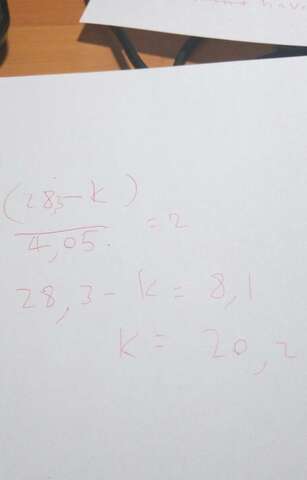 have
(28,3-k)
4,05. =2
28,3-k=8,1
k=20,2